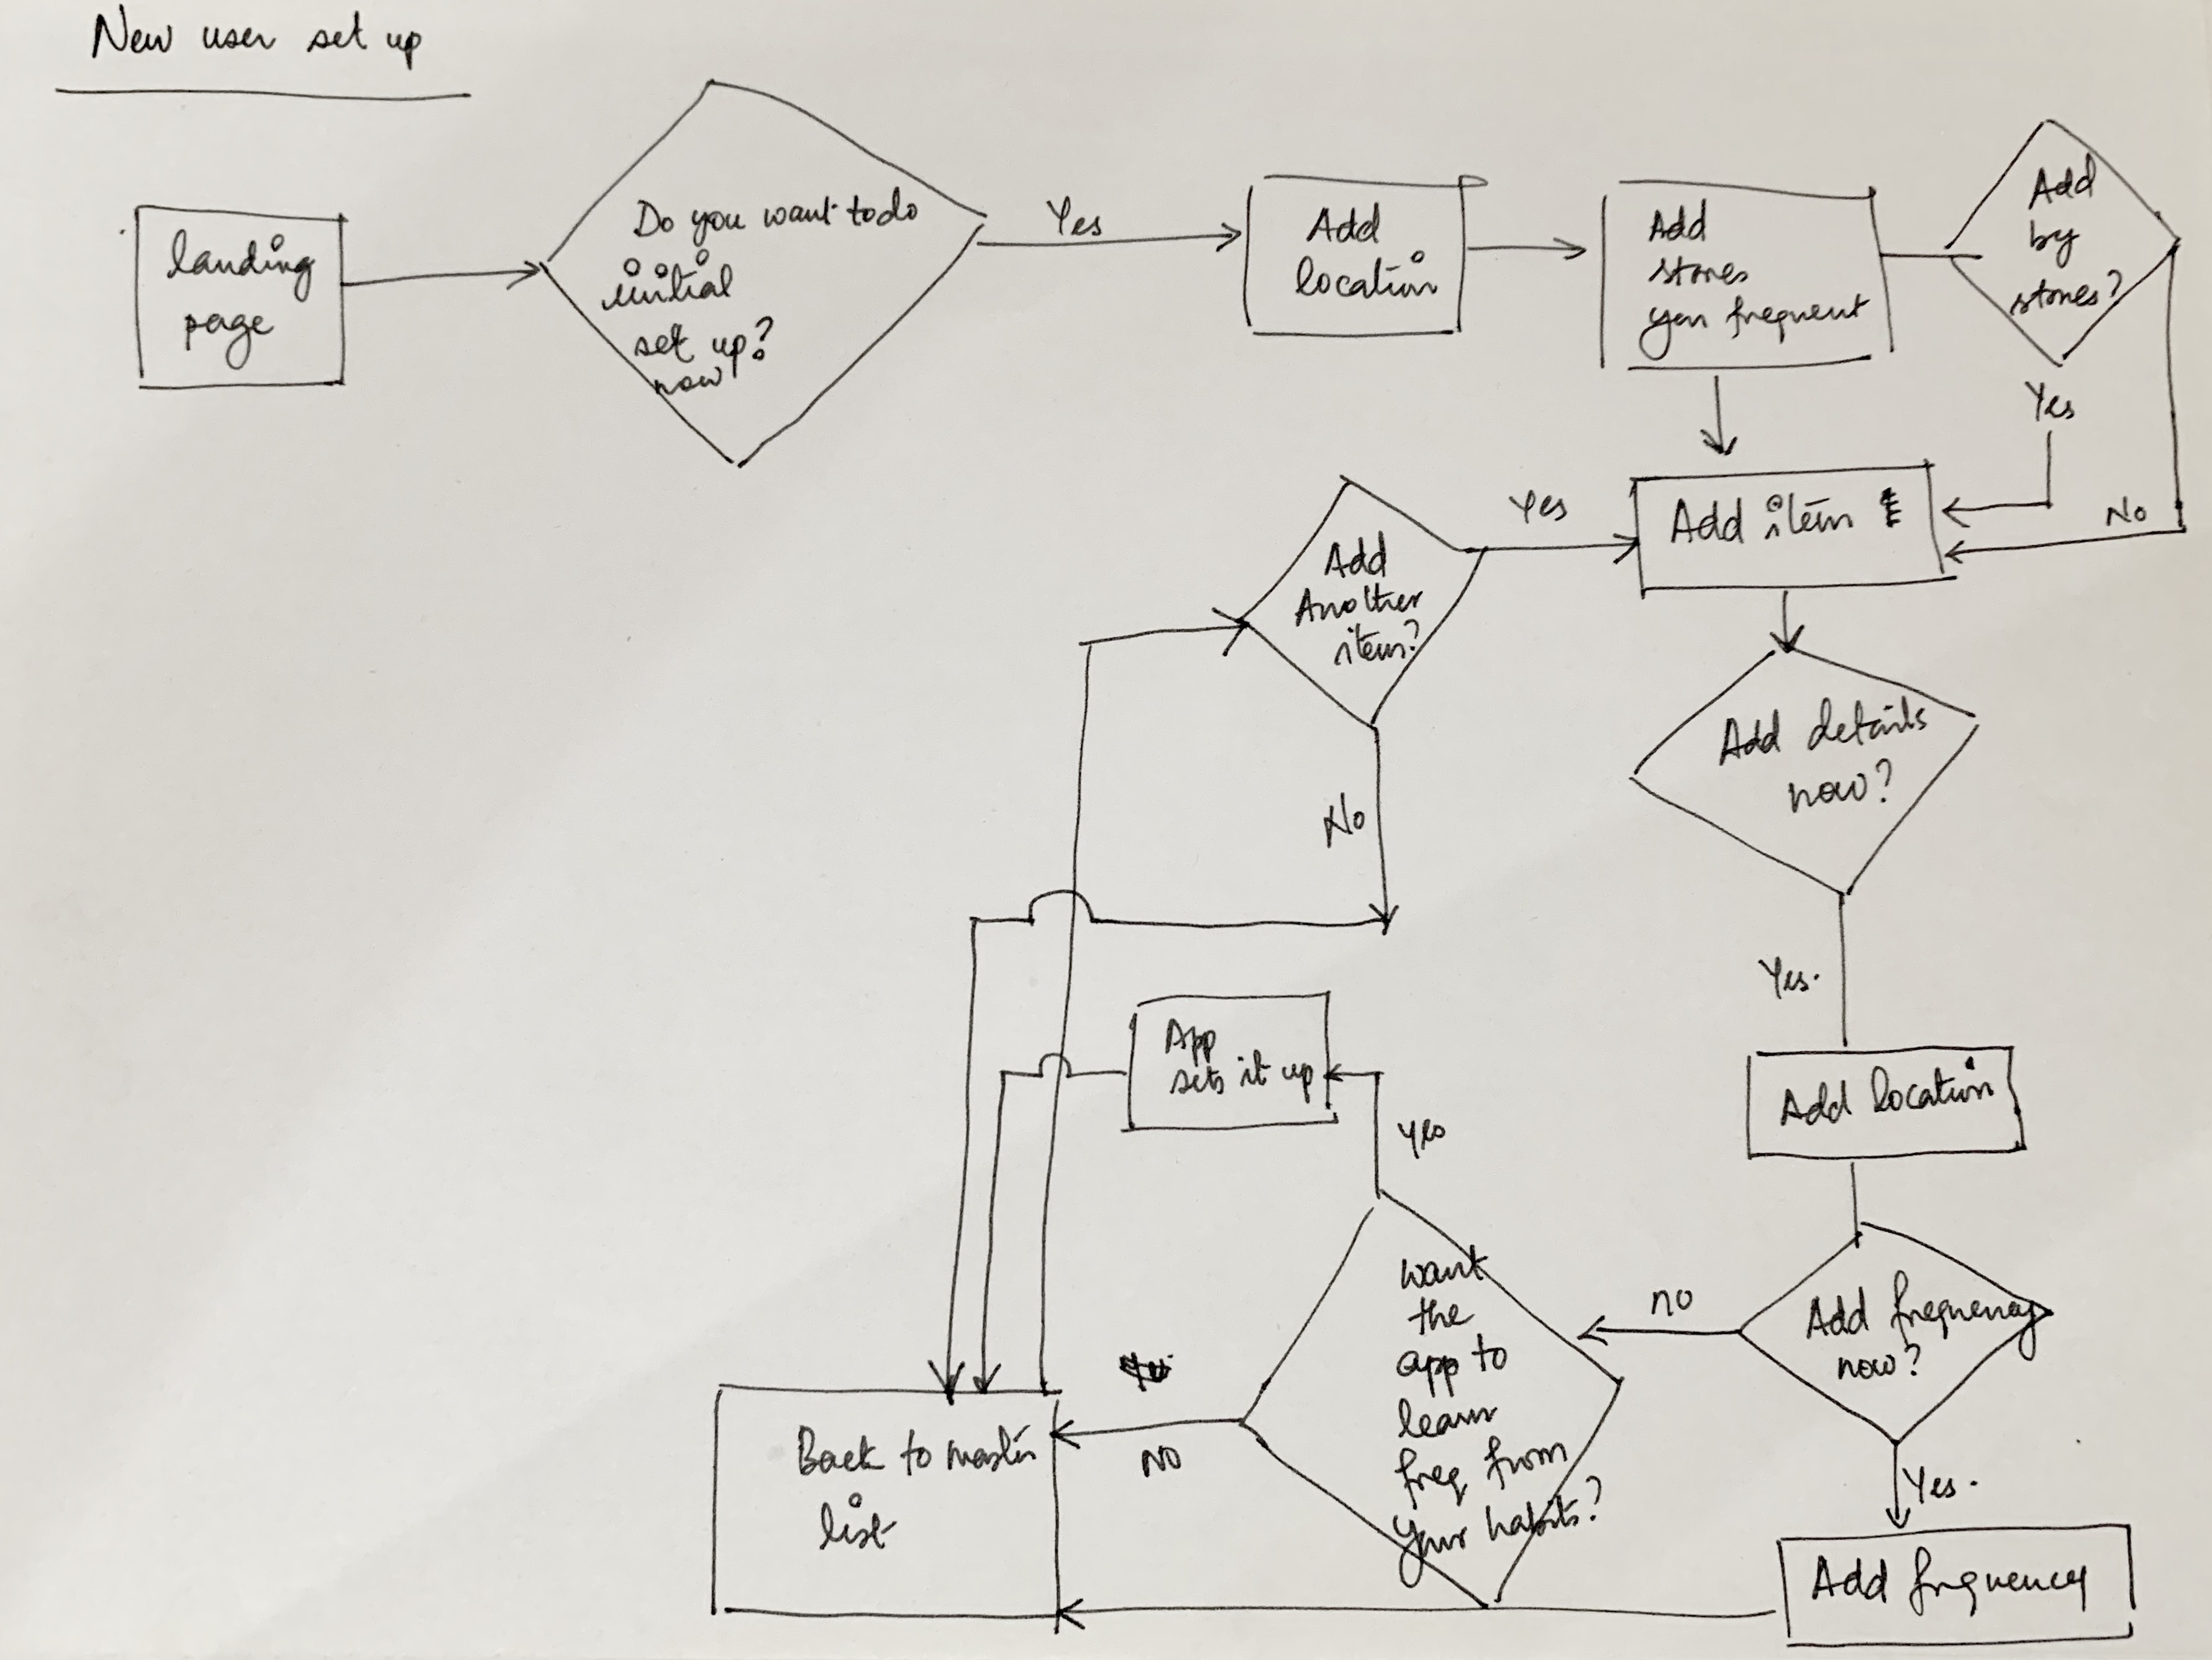 New user set up
landing
page
Do you want to do
initial
set up?
now
Yes
Add
location
Add
stores
you frequent
Add
by
stores?
Yes
No
Add item
Yes
Add
Another
item?
No
Add details
now?
Yes.
Add location
Add frequency
now?
no
Yes.
Add frequency
want
the
app to
learn
freq from
your habits?
yes
App
sets it up
NO
Back to master
list